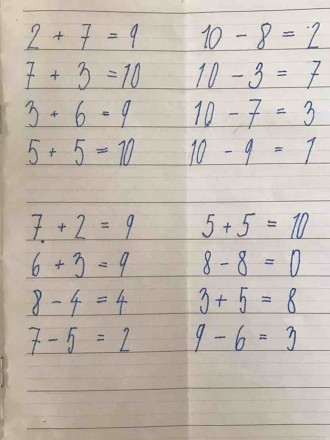 2 + 7 = 9 10 - 8 = 2
7 + 3 = 10 10 - 3 = 7
3 + 6 = 9 10 - 7 = 3
5 + 5 = 10 10 - 9 = 1
7 + 2 = 9 5 + 5 = 10
6 + 3 = 9 8 - 8 = 0
8 - 4 = 4 3 + 5 = 8
7 - 5 = 2 9 - 6 = 3